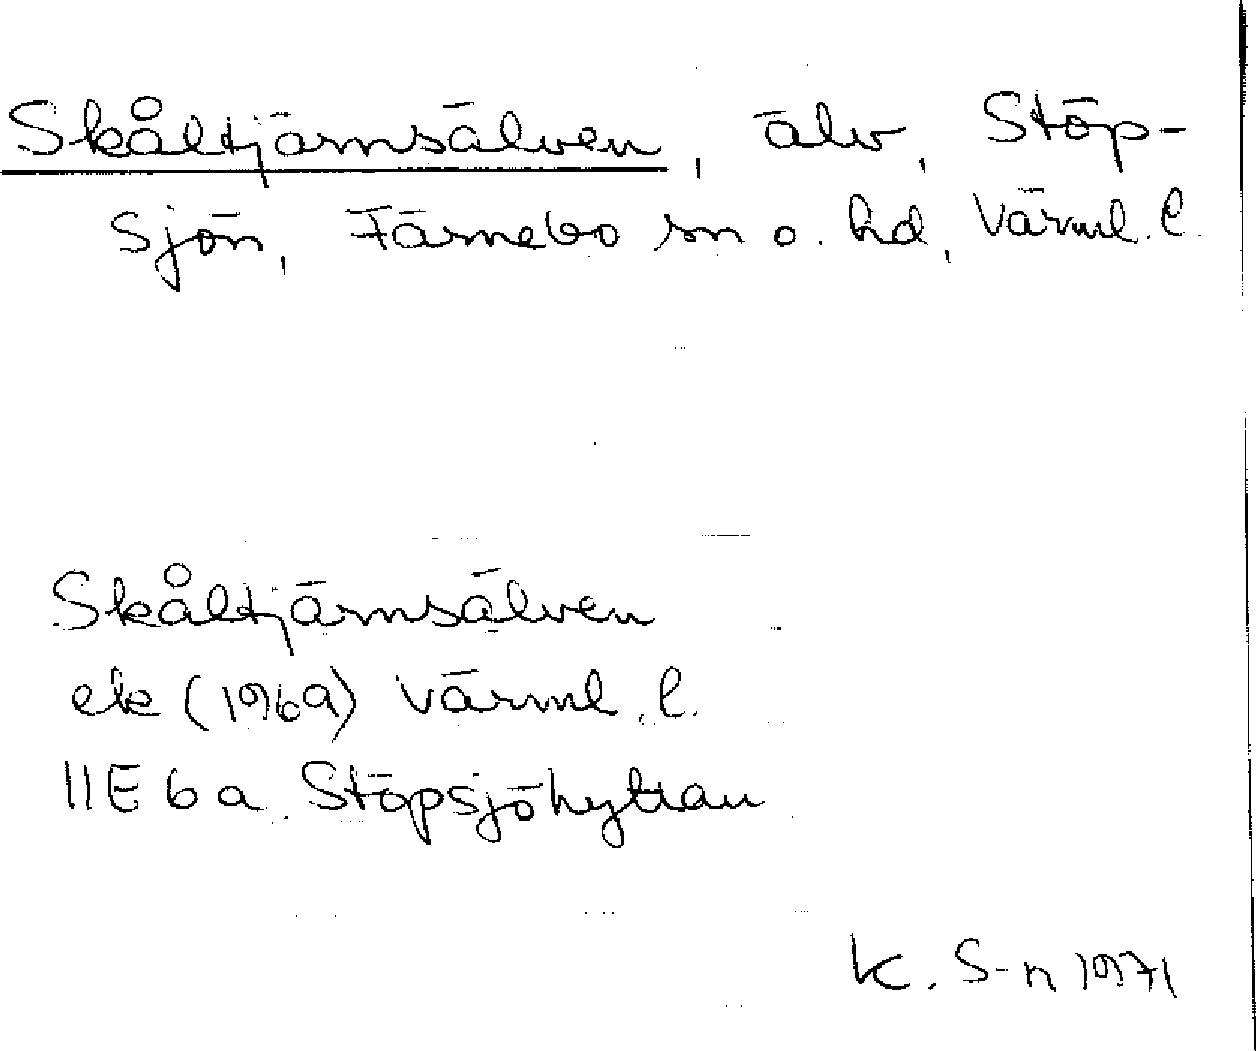 Skåltjärnsälven, älv, Stöp-
sjön, Färnebo sn o. hd, Värml. l.
Skåltjärnsälven
ek (1969) Värml. l.
11E 6a Stöpsjöhyttan
K. S-n 1971